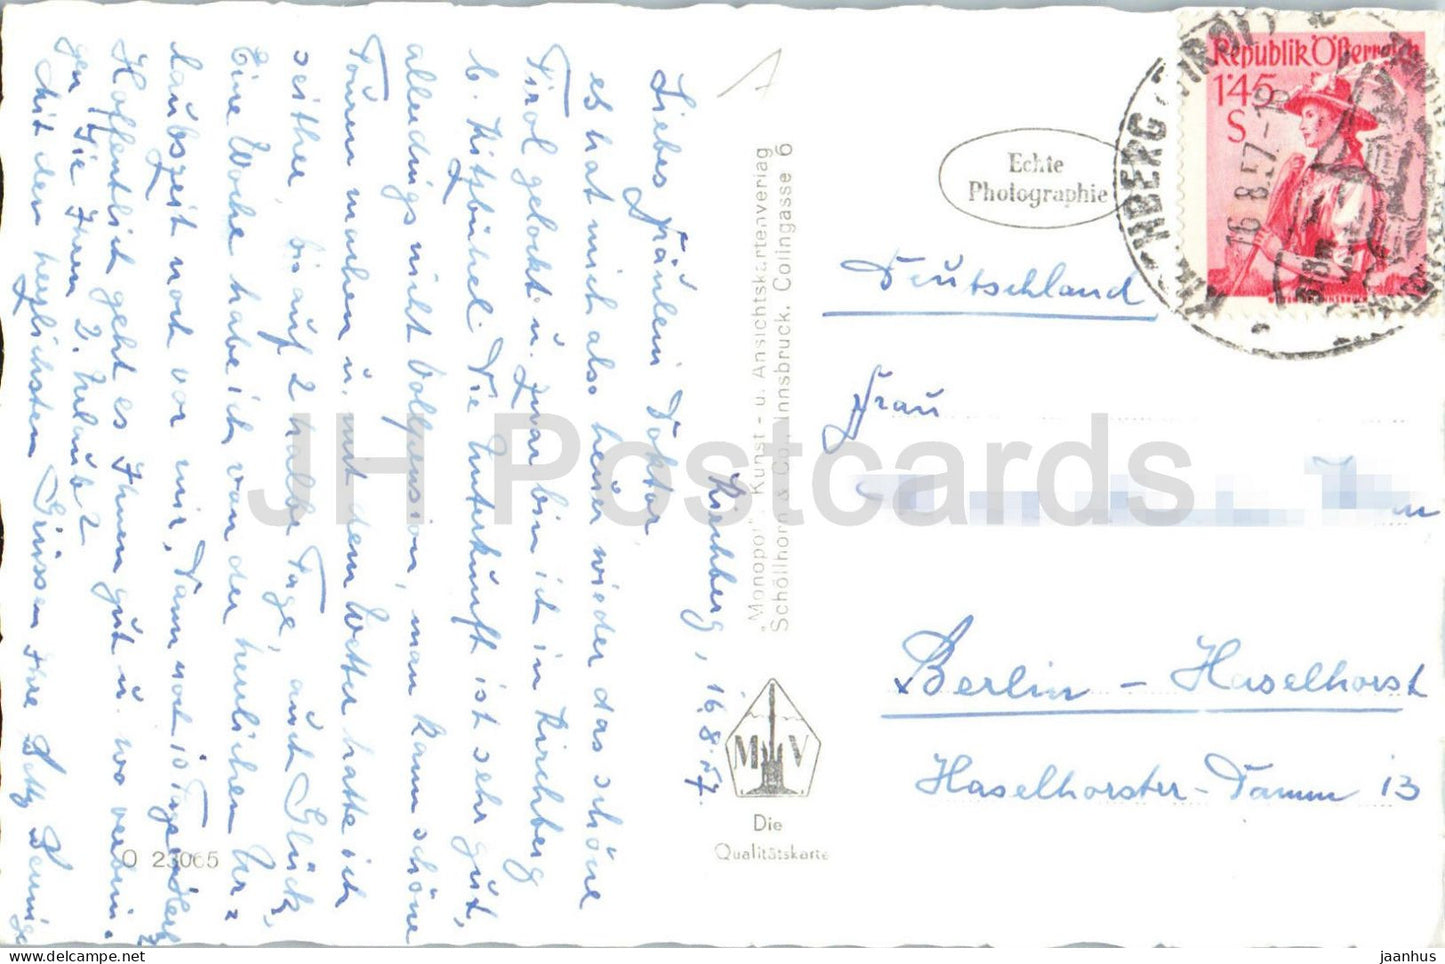 Kirchberg, 16.8.57.
Liebes Fräulein Doktor,
es hat mich also heuer wieder das schöne
Tirol gelockt u. zwar bin ich in Kirchberg
b. Kitzbühel. Die Unterkunft ist sehr gut,
allerdings nicht Vollpension, man kann schöne
Touren machen u. mit dem Wetter hatte ich
seither, bis auf 2 halbe Tage, auch Glück.
Eine Woche habe ich von der herrlichen Ur=
laubszeit noch vor mir, dann noch 10 Tage
Hoffentlich geht es Ihnen gut u. wo verbrin-
gen Sie Ihren 2. Urlaub?
Mit den herzlichsten Grüssen Ihre Betty
O 23065
"Monopol", Kunst - u. Ansichtskartenverlag
Schöllhorn & Co., Innsbruck, Colingasse 6
M V
Die
Qualitätskarte
Echte
Photographie
Republik Österreich
1'45
S
16.8.57.-18
Deutschland
Frau
Berlin - Haselhorst
Haselhorster-Damm 13
JH Postcards
jaanhus @ delcampe.net